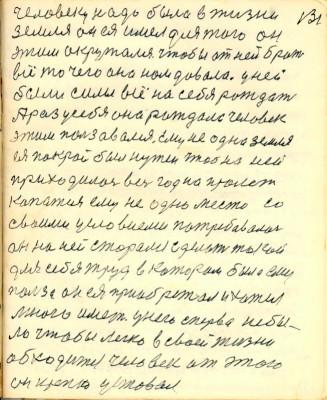 человеку надо было в жизни 131
земля он ея имел для того он
этим окружался чтобы от ней брат
всё то чего она ном довала. у ней
были силы всё на себя рождат
А раз у себя она рождала человек
этим ползавался, ему не одна земля
ея покрой был нужен чтобы на ней
приходилос вес год на пролет
копатся ему не одно место со
своими условиеми потребавалас
он на ней сторалс сделат токой
для себя труд в котором была ему
полза он ея приобретал и хател
много имет у него сперва небы-
ло чтобы легко в своей жизни
обходится человек от этого
он крепко уставал